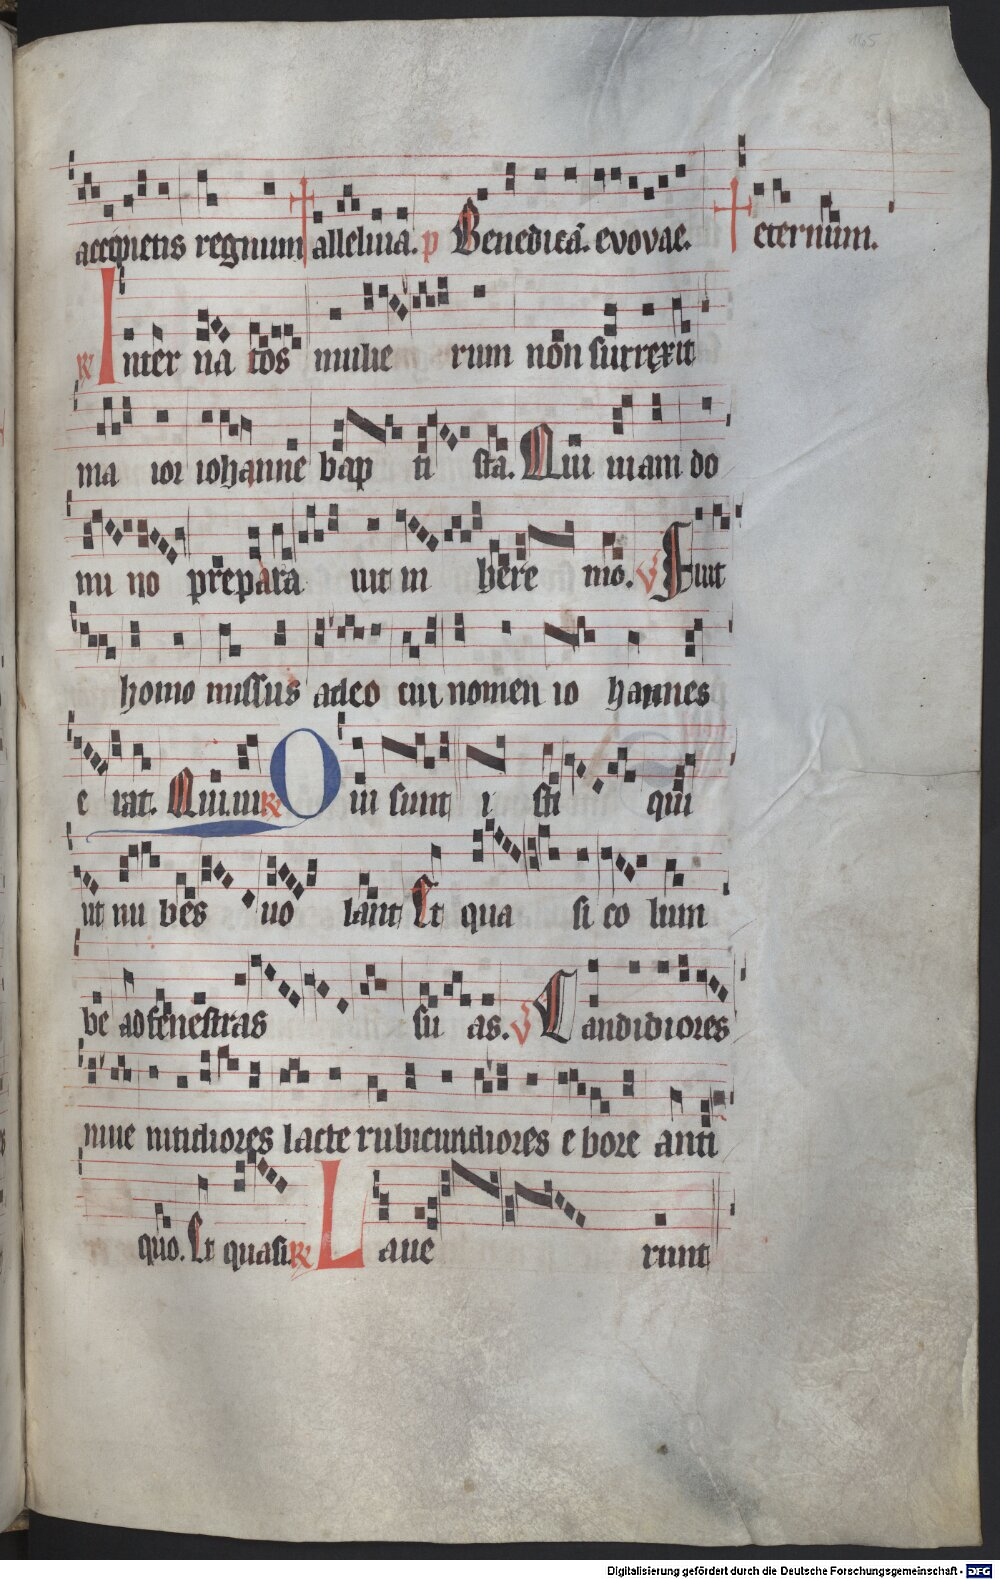 165
accipietis regnum alleluia. p Benedicta. evovae. eternum.
R Inter na tos mulie rum non surrexit
ma ior iohanne bap ti sta. Qui uiam do
mi no prepara uit in here mo. V Fuit
homo missus adeo cui nomen io hannes
e rat. Qui.ui R Q ui sunt i sti qui
ut nu bes uo lant Et qua si co lum
be ad fenestras su as. V Candidiores
niue nitidiores lacte rubicundiores e bore anti
quo. Et quasi. R L aue runt
Digitalisierung gefördert durch die Deutsche Forschungsgemeinschaft - DFG